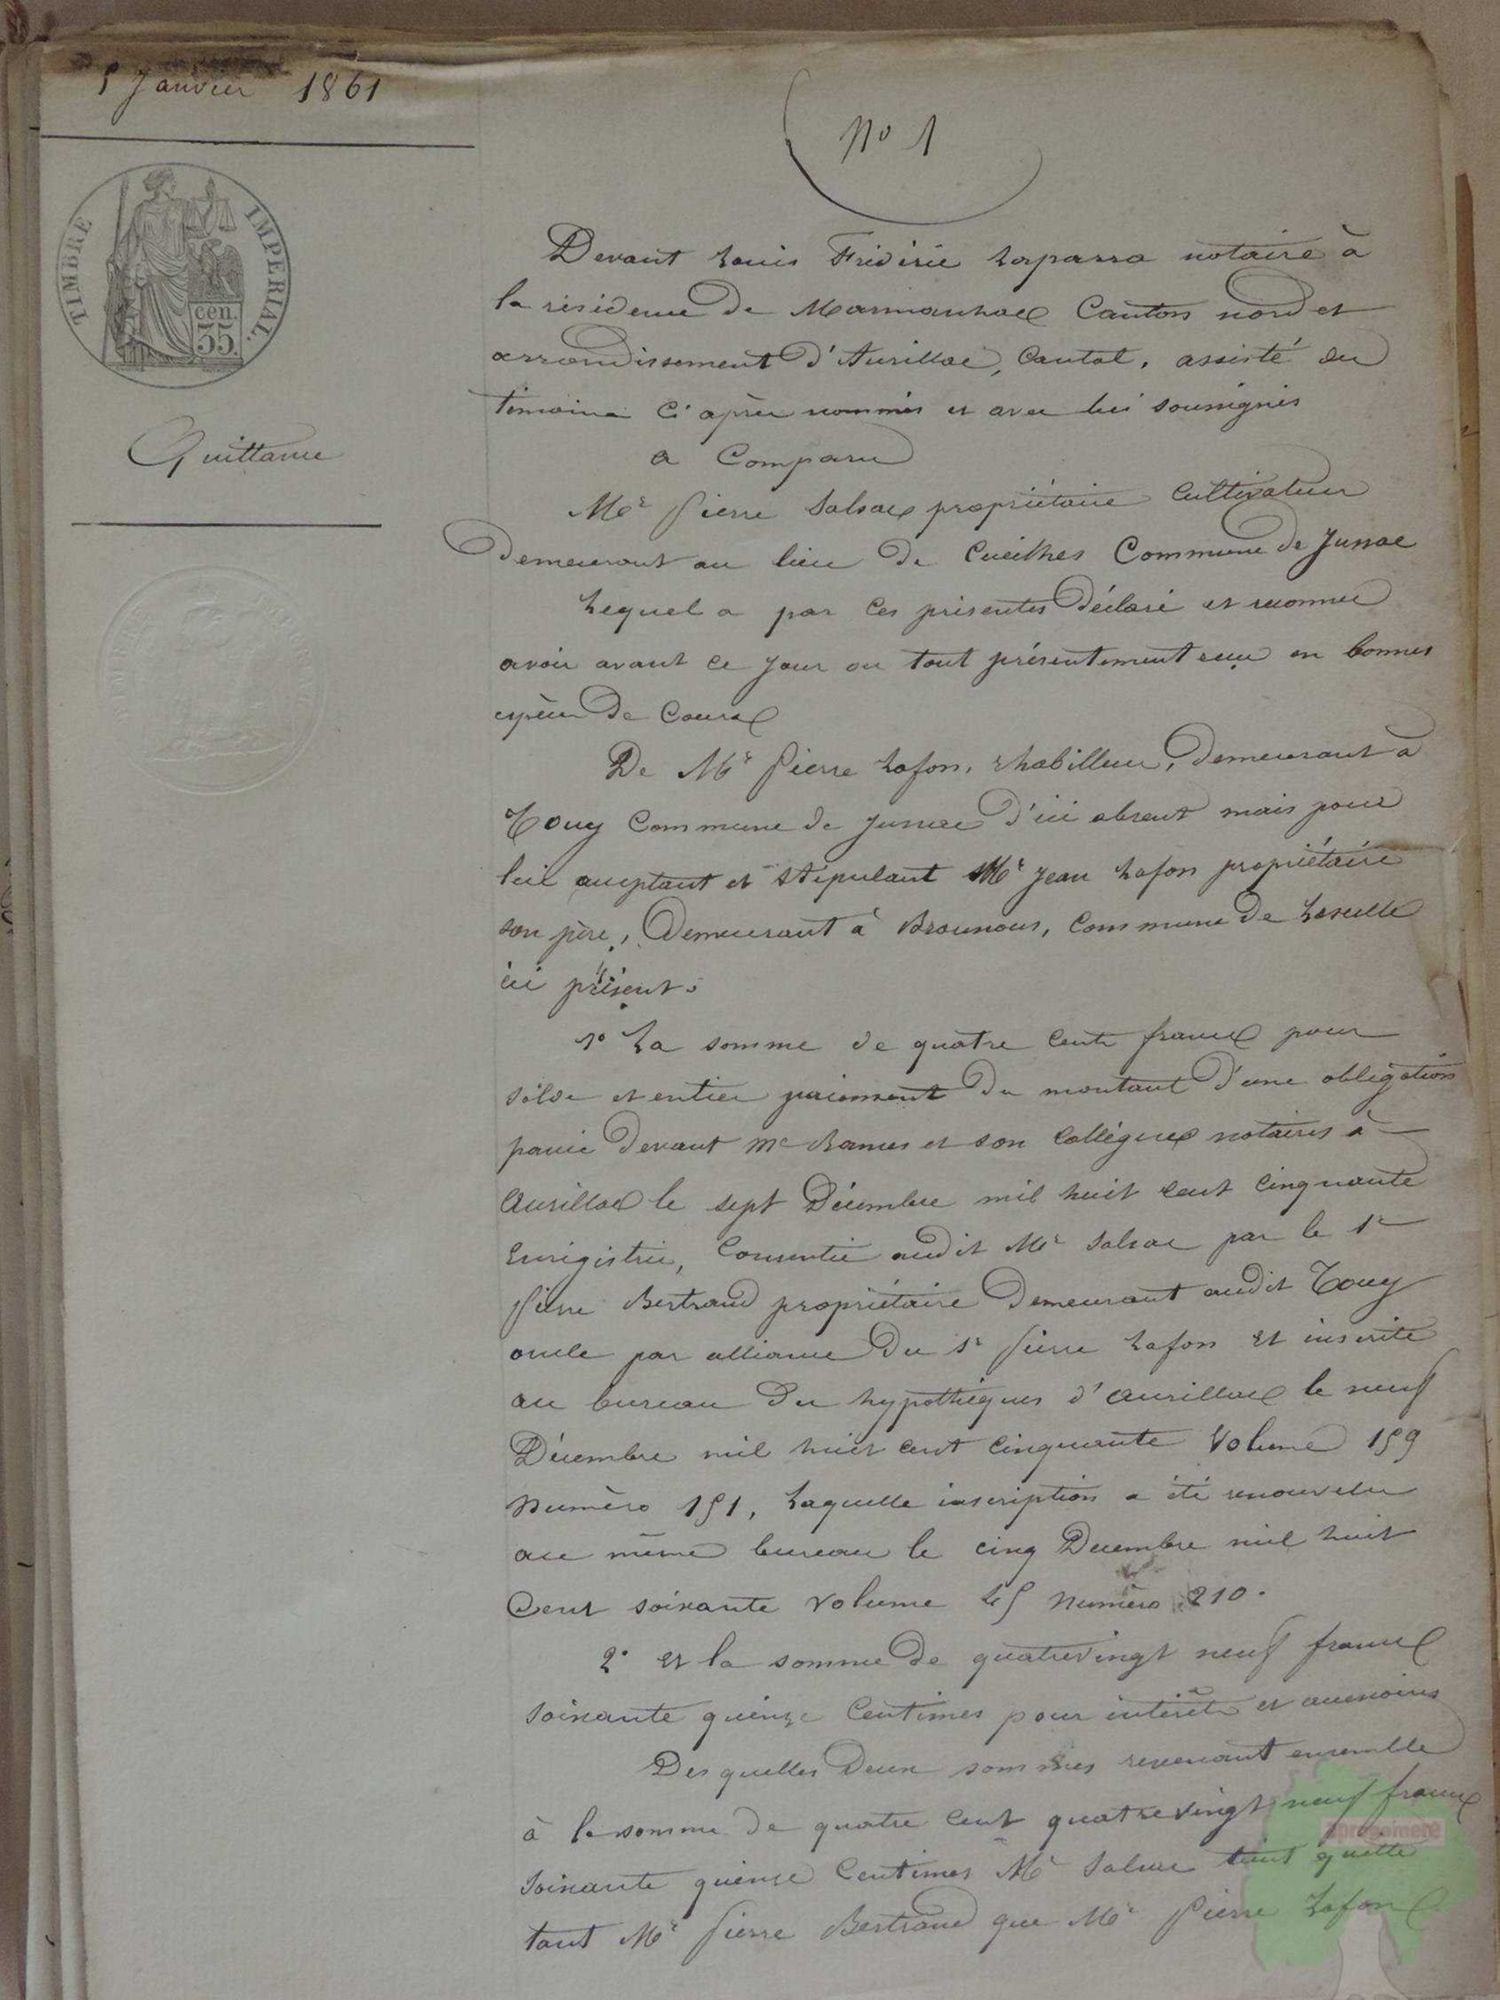 5 Janvier 1861
No 1
TIMBRE IMPERIAL
35 cen.
Quittance
Devant Louis Frédéric Laparra notaire à
la résidence de Marmanhac Canton nord et
arrondissement d'Aurillac, Cantal, assisté des
témoins ci après nommés et avec lui soussignés
a Comparu
Mr Pierre Salsac propriétaire Cultivateur
demeurant au lieu de Cueilhes Commune de Jussac
Lequel a par ces présentes déclaré et reconnu
avoir avant ce jour ou tout présentement reçu en bonnes
espèces de Cours
De Mr Pierre Lafon, rhabilleur, demeurant à
Touy Commune de Jussac d'ici absent mais pour
lui acceptant et stipulant Mr Jean Lafon propriétaire
son père, demeurant à Brounous, Commune de
ici présent.
1o La somme de quatre cents francs pour
solde et entier paiement du montant d'une obligation
passée devant Me Rames et son Collègue notaires à
Aurillac le sept Décembre mil huit cent cinquante
Enregistrée, Consentie audit Mr Salsac par le Sr
Pierre Bertrand propriétaire demeurant audit Touy
oncle par alliance du Sr Pierre Lafon et inscrite
au bureau des hypothèques d'Aurillac le neuf
Décembre mil huit cent cinquante Volume 159
Numèro 151, Laquelle inscription a été renouvelée
au même bureau le cinq Décembre mil huit
Cent soixante volume numèro 210.
2o et la somme de quatrevingt neuf francs
soixante quinze Centimes pour intérêts et accessoires
Des quelles deux sommes revenant ensemble
à la somme de quatre cent quatrevingt neuf francs
soixante quinze Centimes Mr Salsac tient quitte
tant Mr Pierre Bertrand que Mr Pierre Lafon